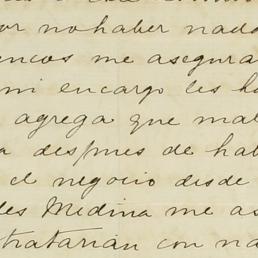 or no haber nada
encos me asegura
mi encargo les h
agrega que mal
a despues de hab
el negocio desde
les Medina me as
tratarian con na